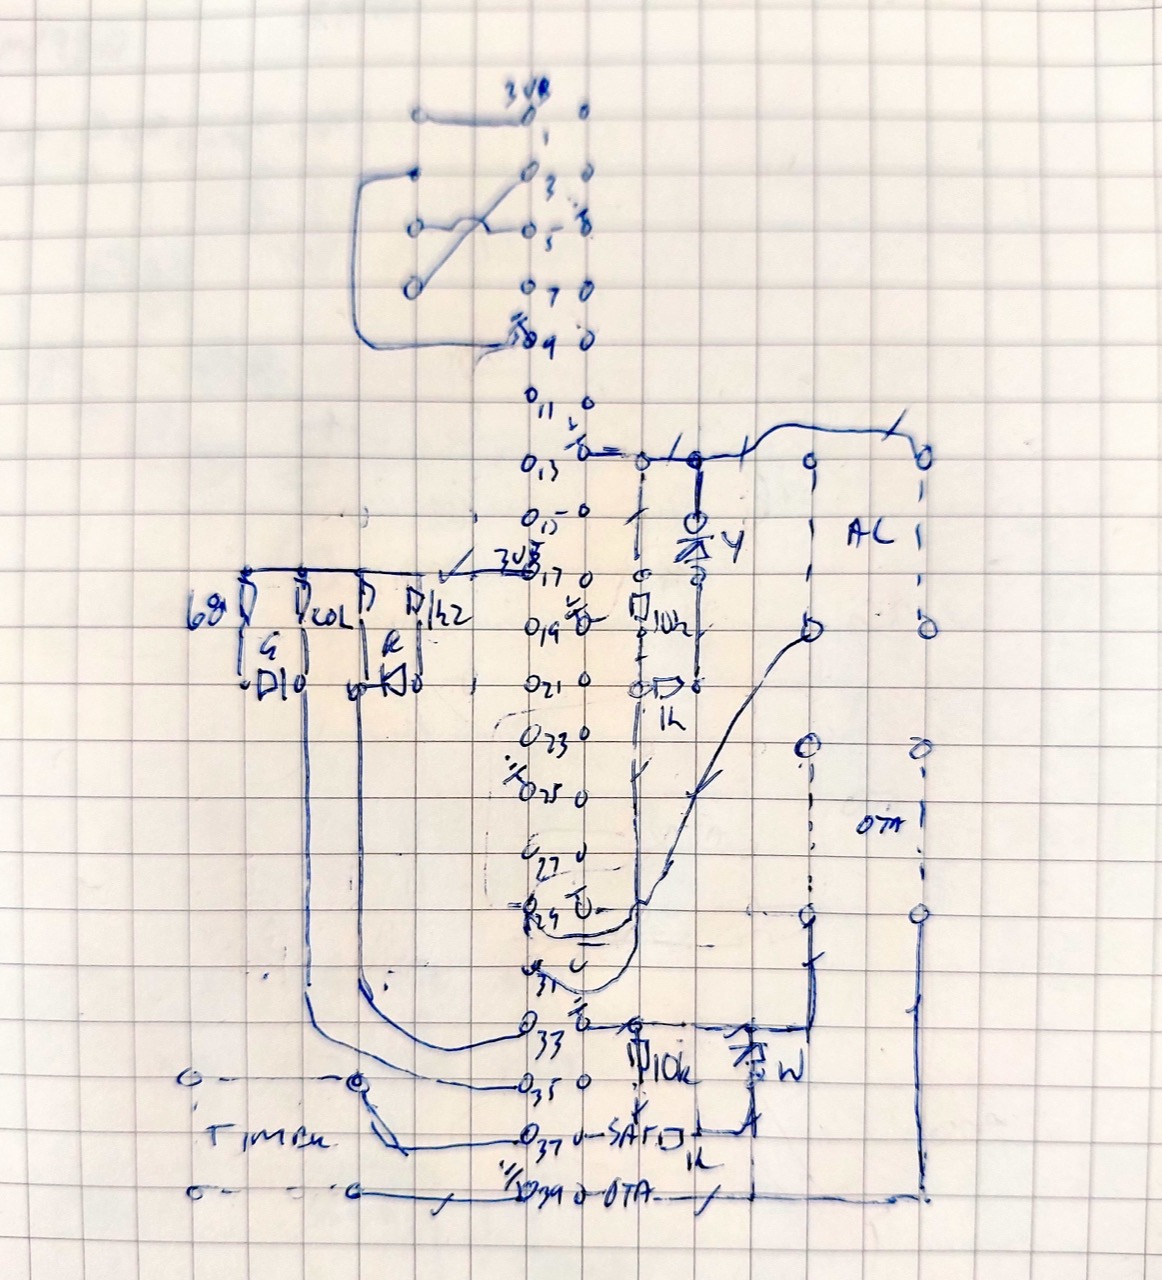 3V3
1
3
5
7
9
11
13
15
Y
AC
3V3
17
68
20L
1k2
19
10k
G
R
21
1k
23
25
OTA
27
29
31
33
10k
W
35
TIMER
37
SAT
1k
39
OTA